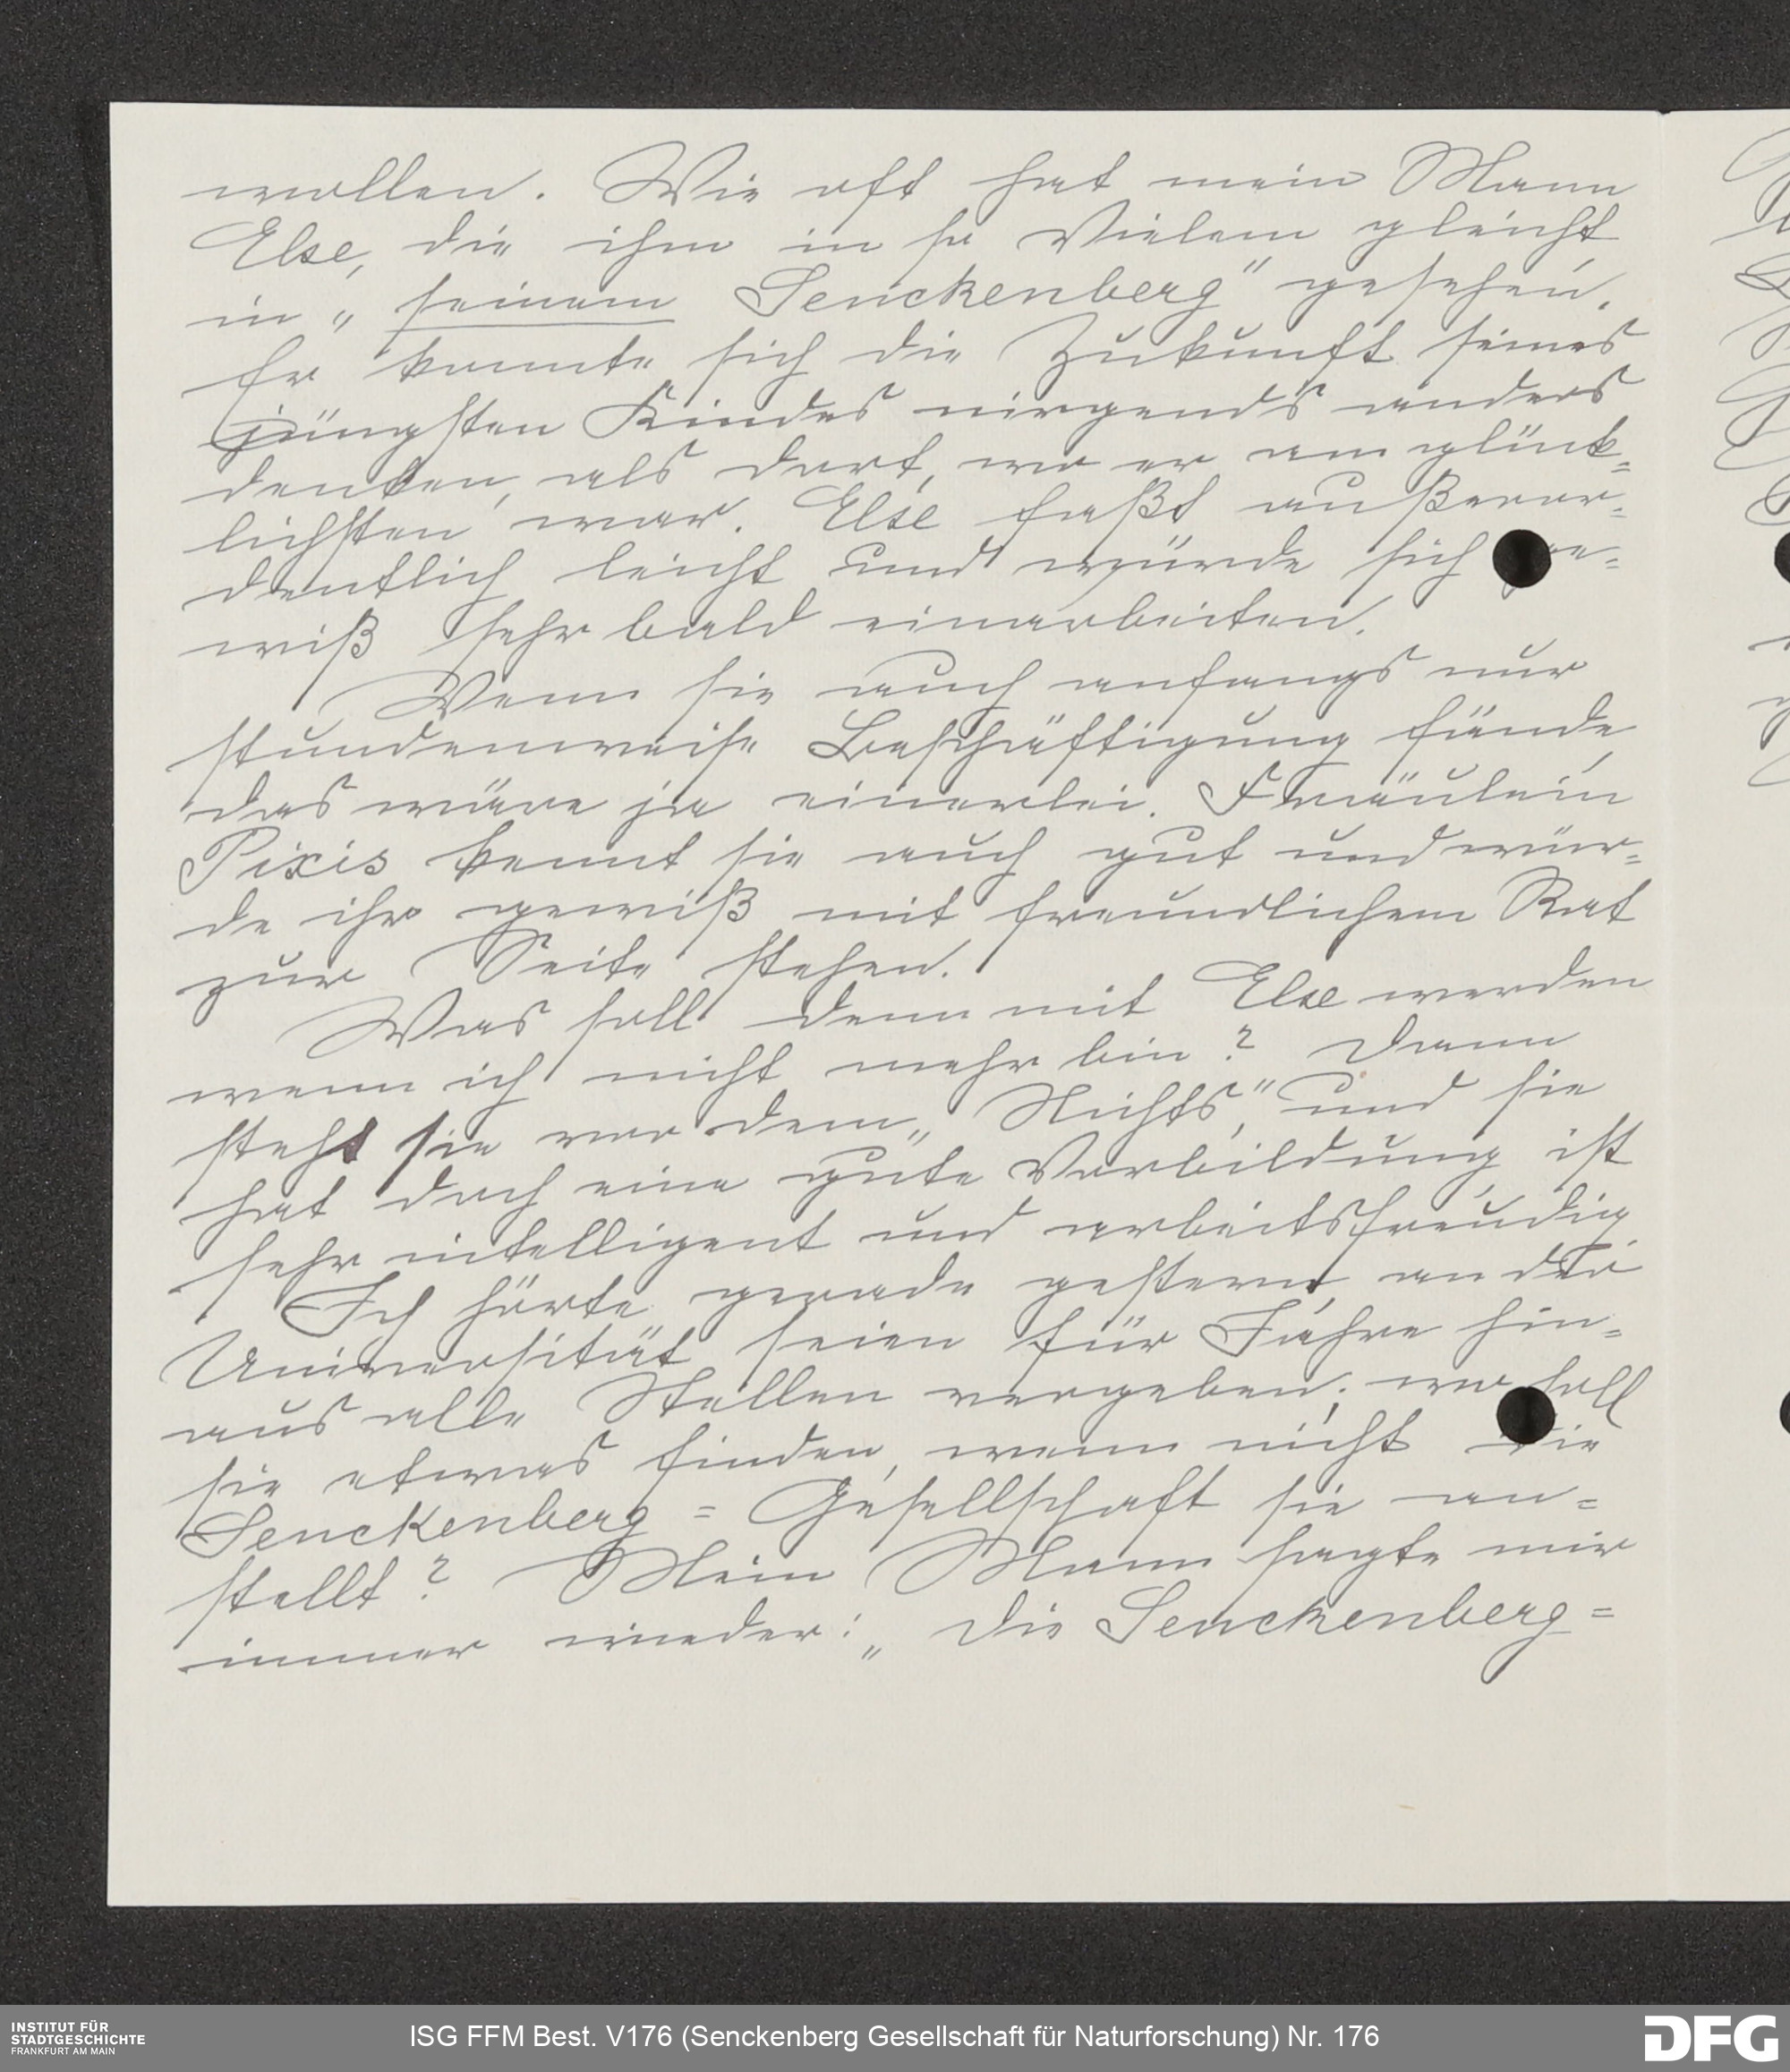 wollen. Wie oft hat mein Mann
Else, die ihm in so Vielem gleicht,
in „seinem Senckenberg" gesehen.
Er konnte sich die Zukunft seines
jüngsten Kindes nirgends anders
denken, als dort, wo er am glück=
lichsten war. Else faßt außeror=
dentlich leicht und würde sich ge=
wiß sehr bald einarbeiten.
Wenn sie auch anfangs nur
stundenweise Beschäftigung fände,
das wäre ja einerlei. Fräulein
Pixis kennt sie auch gut und wür=
de ihr gewiß mit freundlichem Rat
zur Seite stehen.
Was soll denn mit Else werden
wenn ich nicht mehr bin? Dann
steht sie vor dem „Nichts," und sie
hat doch eine gute Vorbildung, ist
sehr intelligent und arbeitsfreudig.
Ich hörte gerade gestern, an der
Universität seien für Jahre hin=
aus alle Stellen vergeben; wo soll
sie etwas finden, wenn nicht die
Senckenberg=Gesellschaft sie an=
stellt? Mein Mann sagte mir
immer wieder: „Die Senckenberg=
INSTITUT FÜR
STADTGESCHICHTE
FRANKFURT AM MAIN
ISG FFM Best. V176 (Senckenberg Gesellschaft für Naturforschung) Nr. 176
DFG